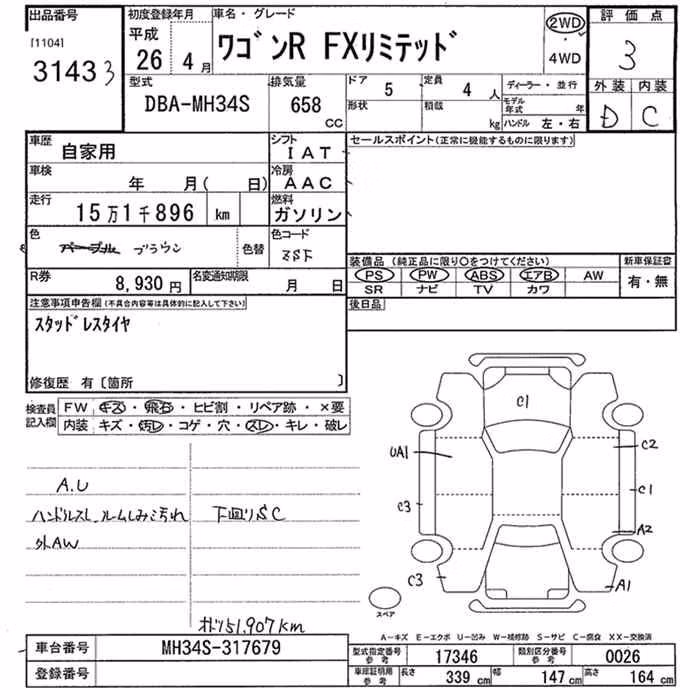 出品番号
[1104]
31433
初度登録年月
平成
26年 4月
車名・グレード
ワゴンR FXリミテッド
2WD
4WD
評価点
3
外装 内装
D C
型式
DBA-MH34S
排気量
658 CC
ドア 5
形状
定員 4 人
積載 kg
ディーラー・並行
モデル年式 年
ハンドル 左・右
車歴
自家用
車検
年 月( 日)
走行
15万1千896 km
色
パープル ブラウン
色替
R券
8,930 円
名変通知期限
月 日
シフト
IAT
冷房
AAC
燃料
ガソリン
色コード
ZSF
セールスポイント(正常に機能するものに限ります)
装備品(純正品に限り○をつけてください)
PS PW ABS エアB AW
SR ナビ TV カワ
新車保証書
有・無
後日品
注意事項申告欄(不具合内容等は具体的に記入して下さい)
スタッドレスタイヤ
修復歴 有〔箇所 〕
検査員記入欄
FW キズ・飛石・ヒビ割・リペア跡・×要
内装 キズ・汚れ・コゲ・穴・スレ・キレ・破レ
A.U
ハンドルスレ ルームしみ汚れ
外AW
下廻りSC
オドメ151,907km
C1
UA1
C2
C3
C1
A2
C3
A1
スペア
A-キズ E-エクボ U-凹み W-補修跡 S-サビ C-腐食 XX-交換済
車台番号
MH34S-317679
登録番号
型式指定番号 参考
17346
類別区分番号 参考
0026
車庫証明用 参考
長さ 339 cm
幅 147 cm
高さ 164 cm